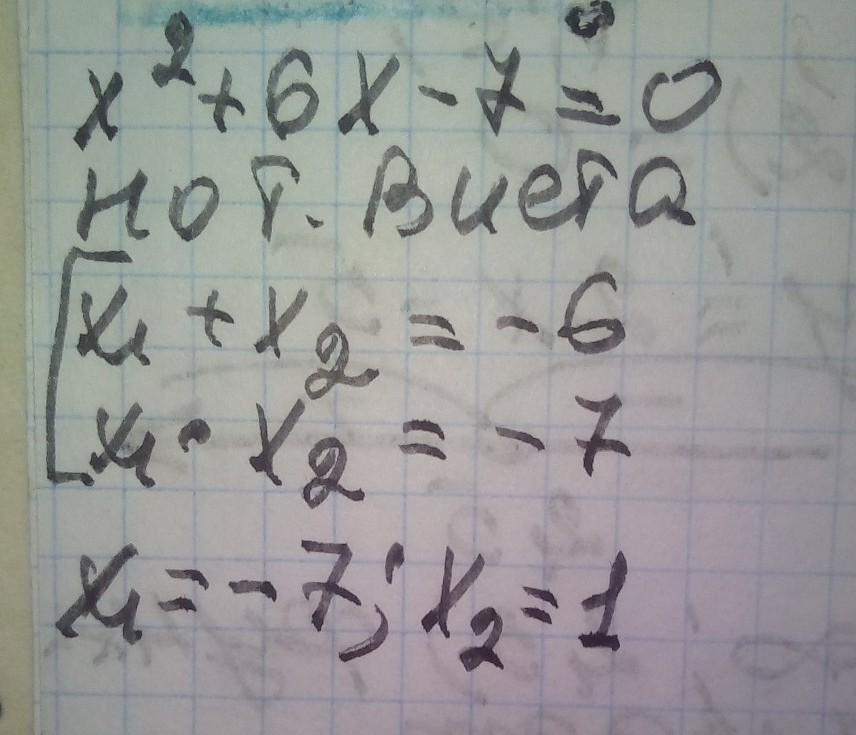 x²+6x-7=0
по т. Виета
[x₁+x₂=-6
x₁·x₂=-7
x₁=-7; x₂=1